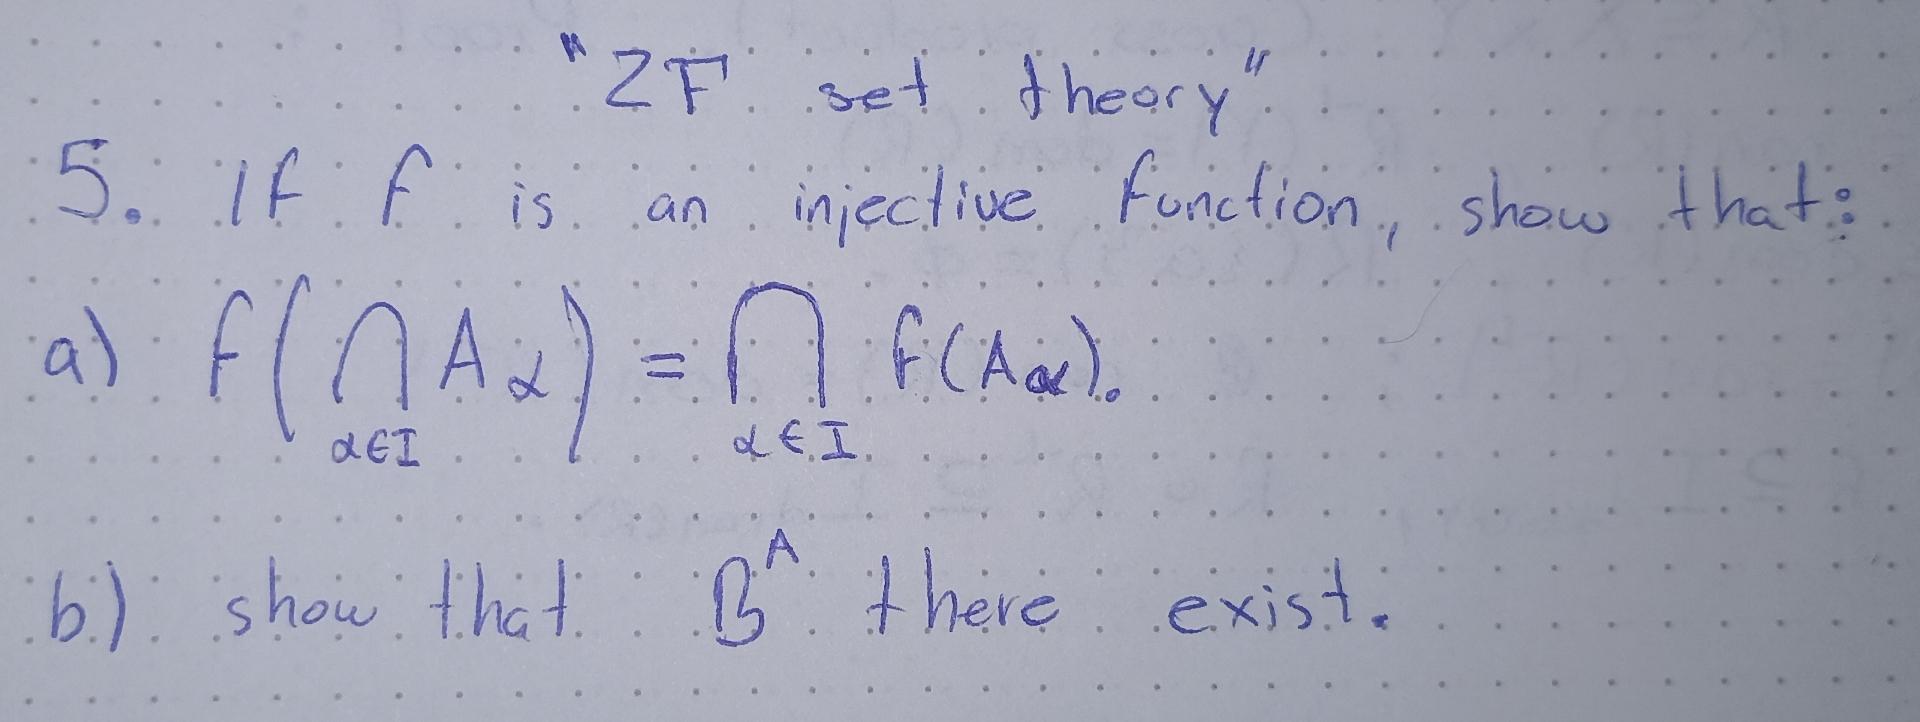 "ZF set theory"
5. If f is an injective function, show that:
a) f(⋂ A_α) = ⋂ f(A_α).
α∈I α∈I
b) show that B^A there exist.